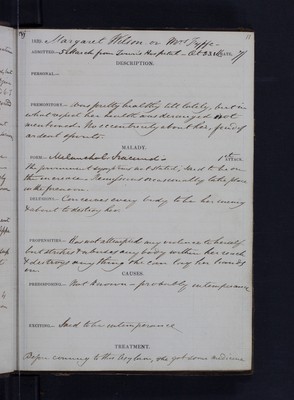 Margaret Wilson or Mrs
ADMITTED.— 5 March from Town's Hospital — Oct 22
DESCRIPTION.
PERSONAL.—
PREMONITORY.— Was pretty healthy till lately, but in
what respect her health was deranged not
mentioned. No eccentricity about her, fond of
ardent spirits.
MALADY.
FORM.— Melancholia 1st ATTACK.
The permanent symptoms not stated, said to be on
the increase. occasionally takes place
in the
DELUSIONS.— Conceives every body to be her enemy
& about to destroy her.
PROPENSITIES.— Has not attempted any violence to herself
but strikes & abuses any body within her reach
& destroys any thing she can lay her hands
on.
CAUSES.
PREDISPOSING.— Not known — probably intemperance
EXCITING.— Said to be intemperance
TREATMENT.
Before coming to this Asylum, she got some medicine